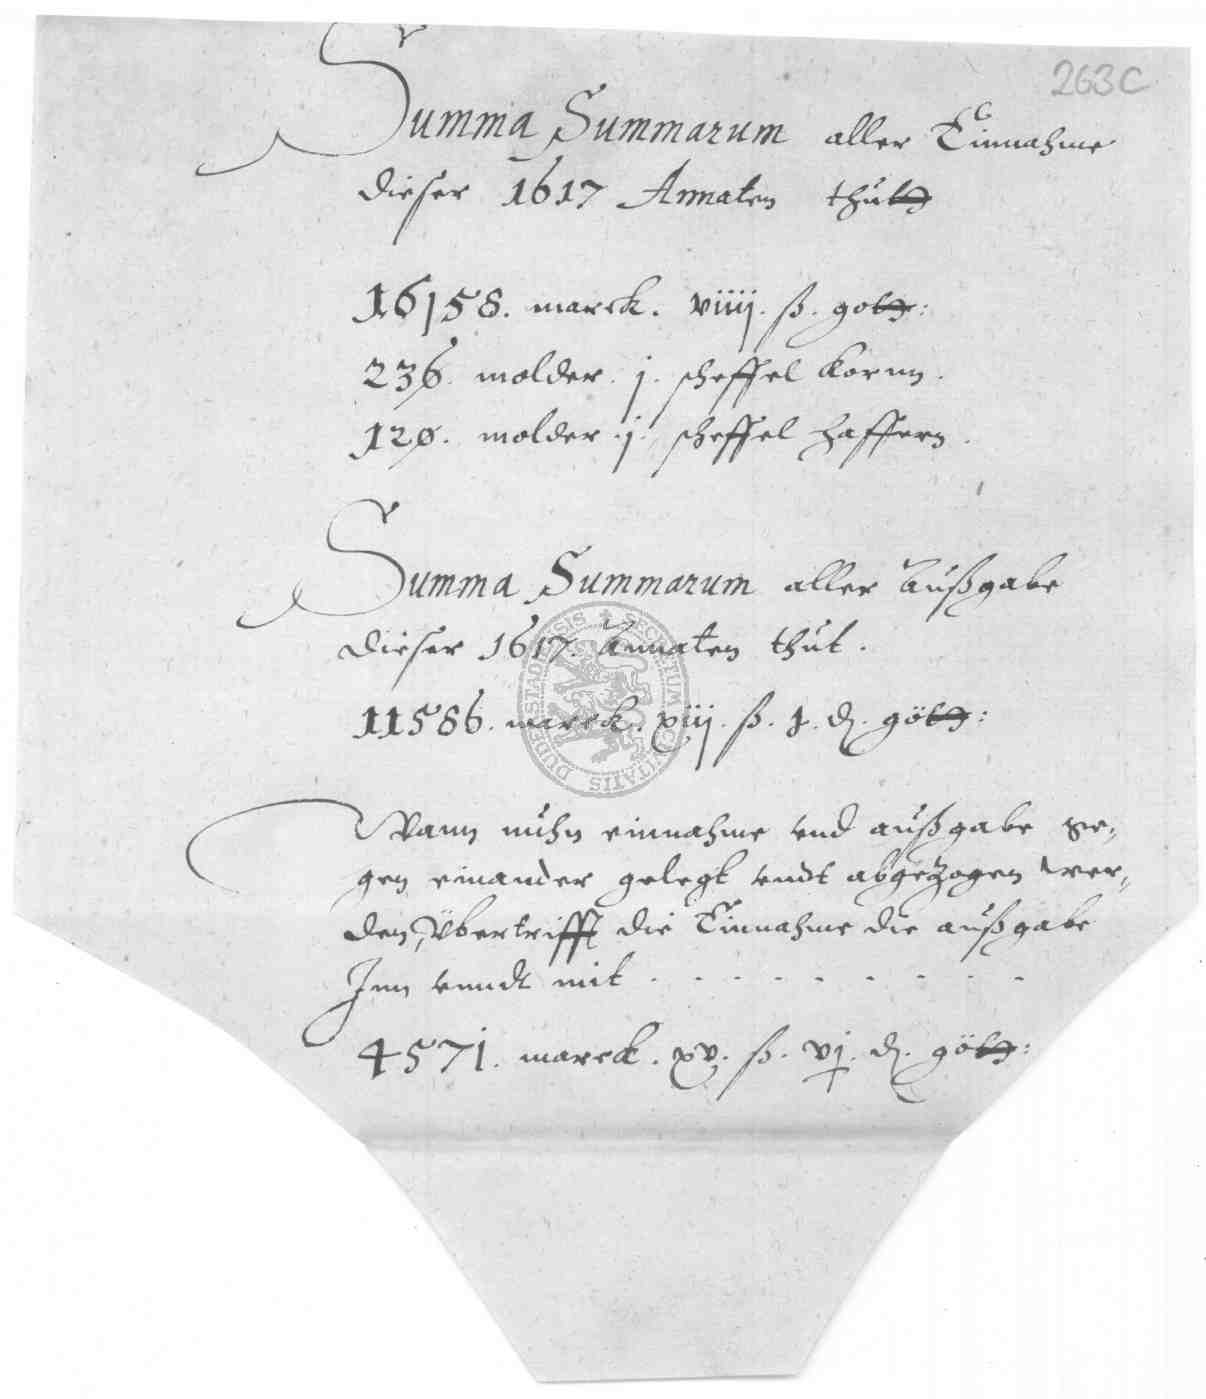 263C
Summa Summarum aller Einnahme
dieser 1617 Annaten thutt
16158. marck. viiij. ß. gött:
236. molder. j. scheffel Kornn.
120. molder. j. scheffel haffern.
Summa Summarum aller Außgabe
dieser 1617. Annaten thut.
11586. marck. xiij. ß. 1. d. gött:
Wann nuhn einnahme vnd außgabe ge„
gen einander gelegt vndt abgezogen wer„
den, Vbertrifft die Einnahme die außgabe
Inn vnndt mit . . . . . . . . . .
4571. marck. xv. ß. vj. d. gött:
SECRETUM CIVITATIS DUDERSTADENSIS